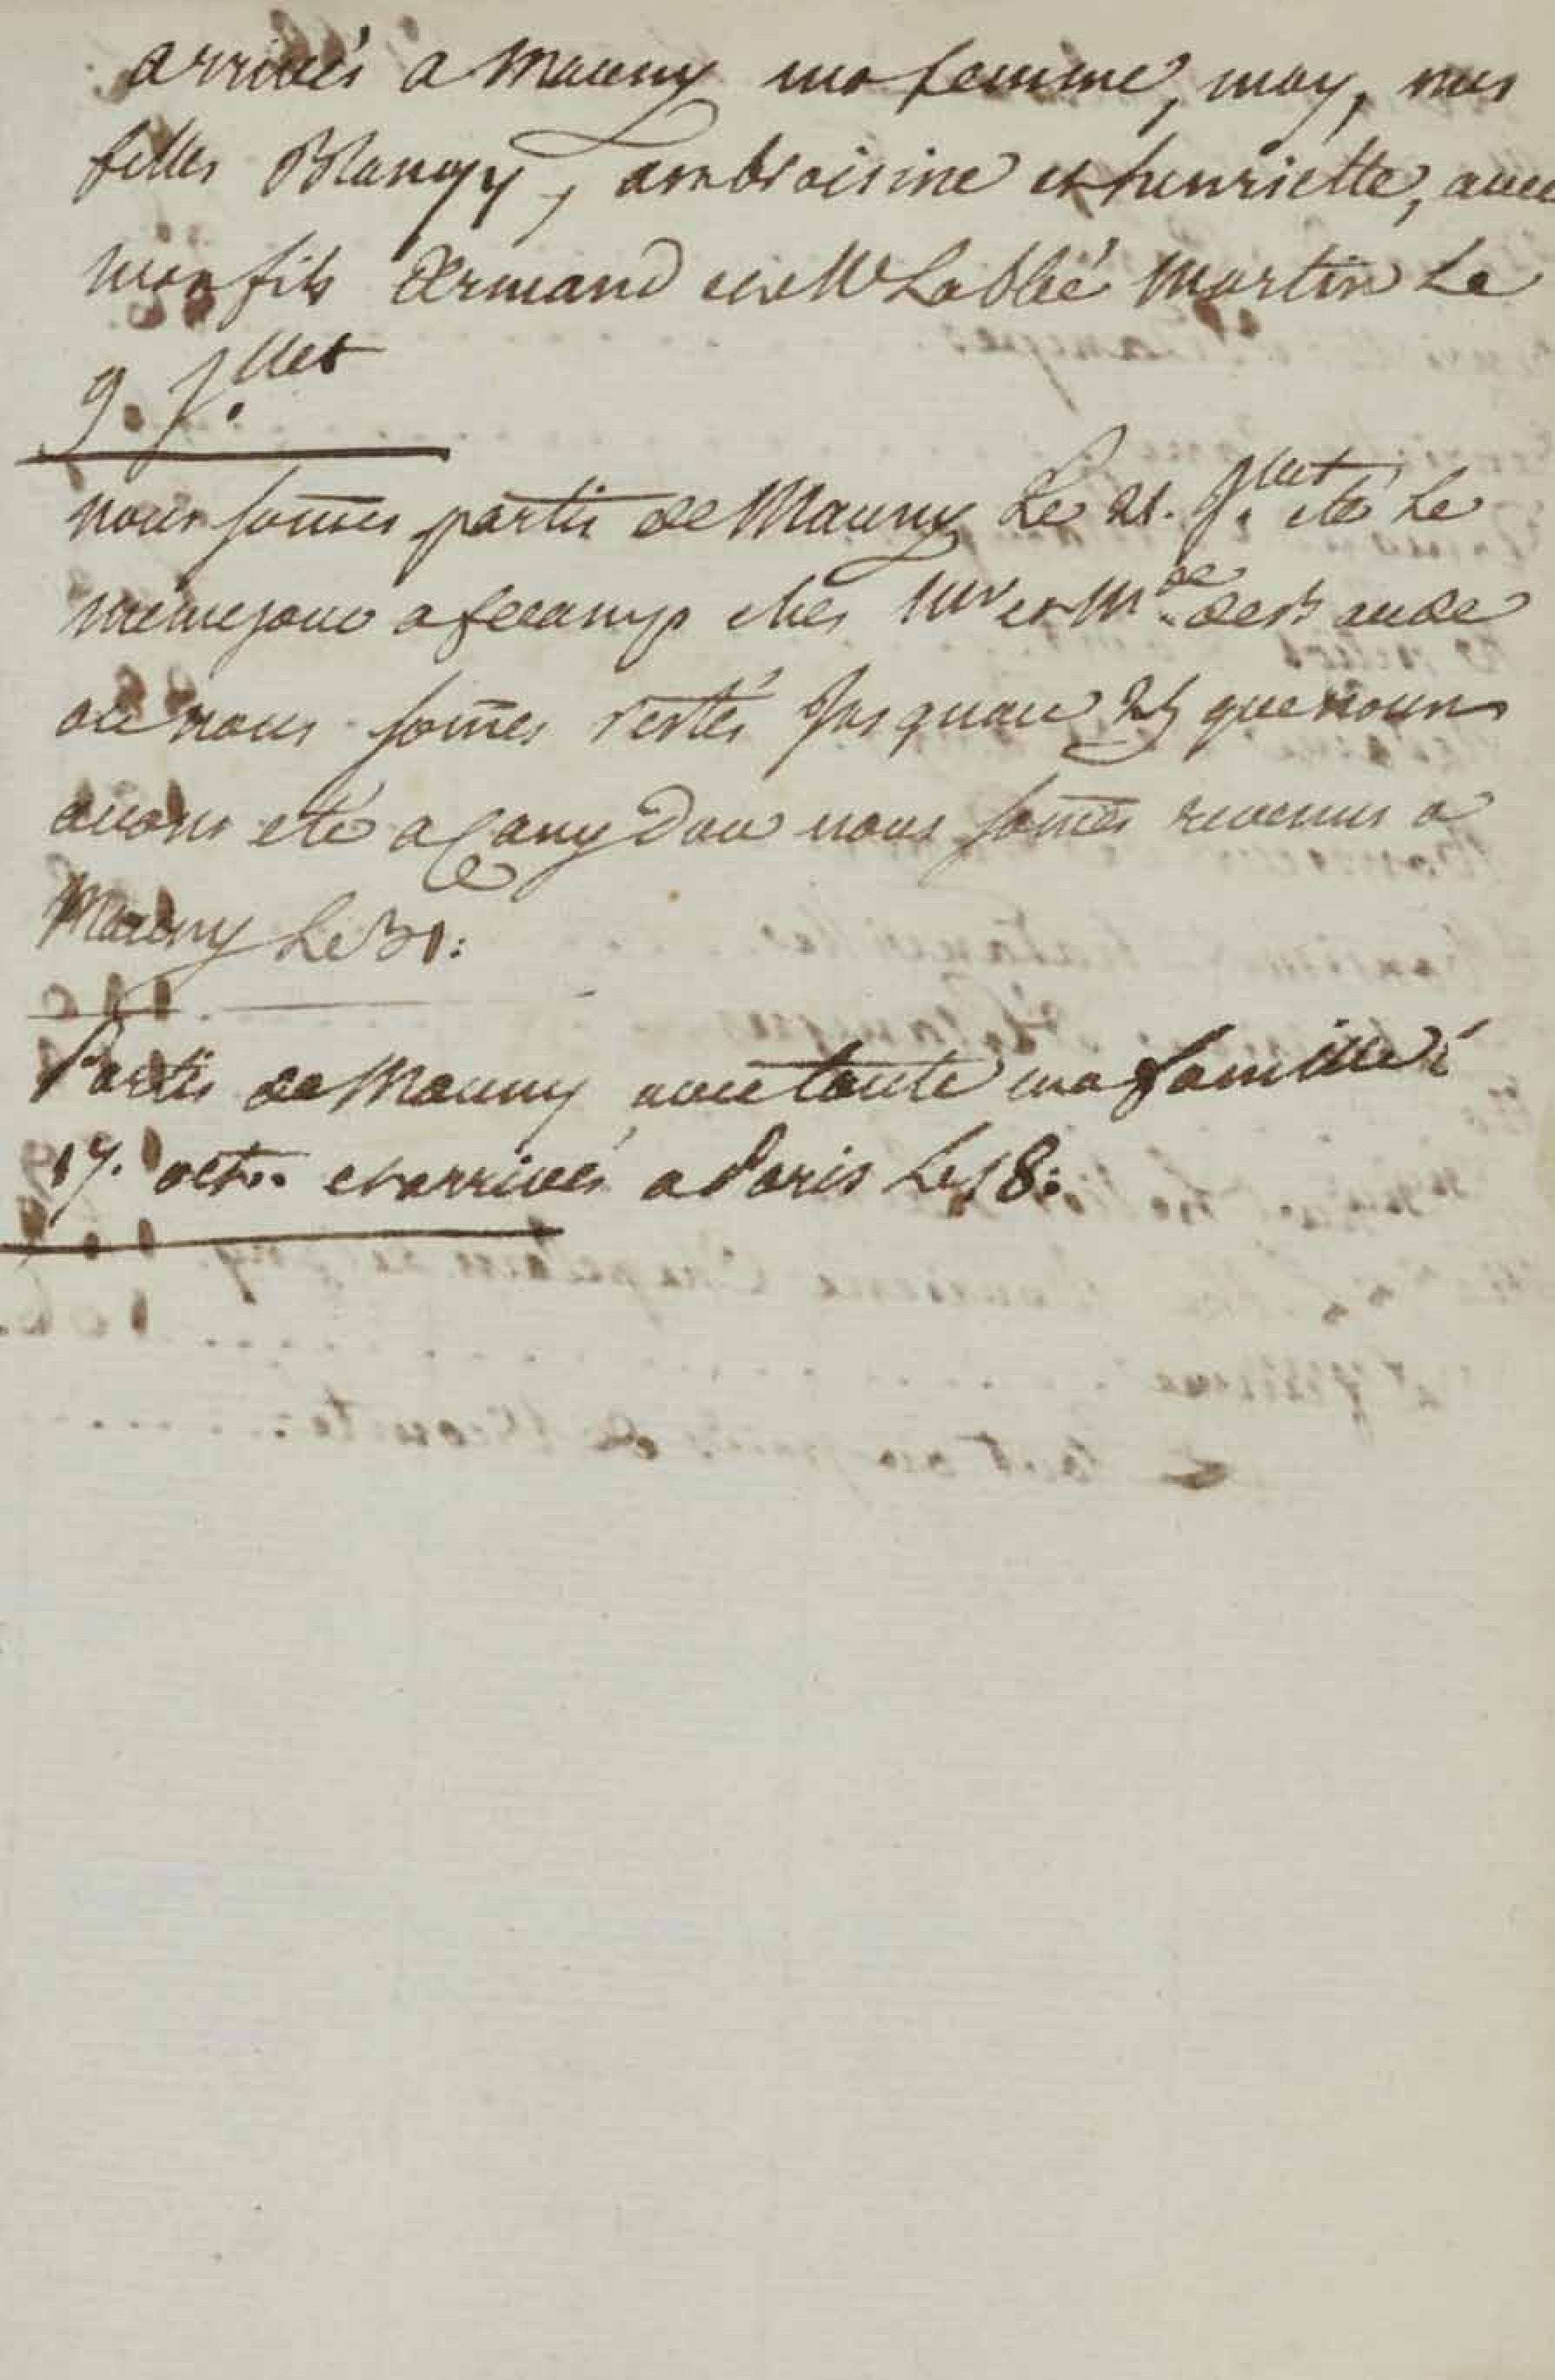 arrivés a Mauny ma femme, moy, mes
filles Blangy, ambroisine et henriette, avec
mon fils Armand et Mr Labbé Martin Le
9. Jllet
nous som̄es partis de Mauny Le 21. Jllet eté Le
meme jour a fecamp ches Mr et Mde de
ou nous som̄es restés Jusquau 25 que nous
avons eté a Cany Dou nous som̄es revenus a
Mauny Le 31:
Partis de Mauny avec toute ma famille
17. octre. et arrivés a Paris Le 18: